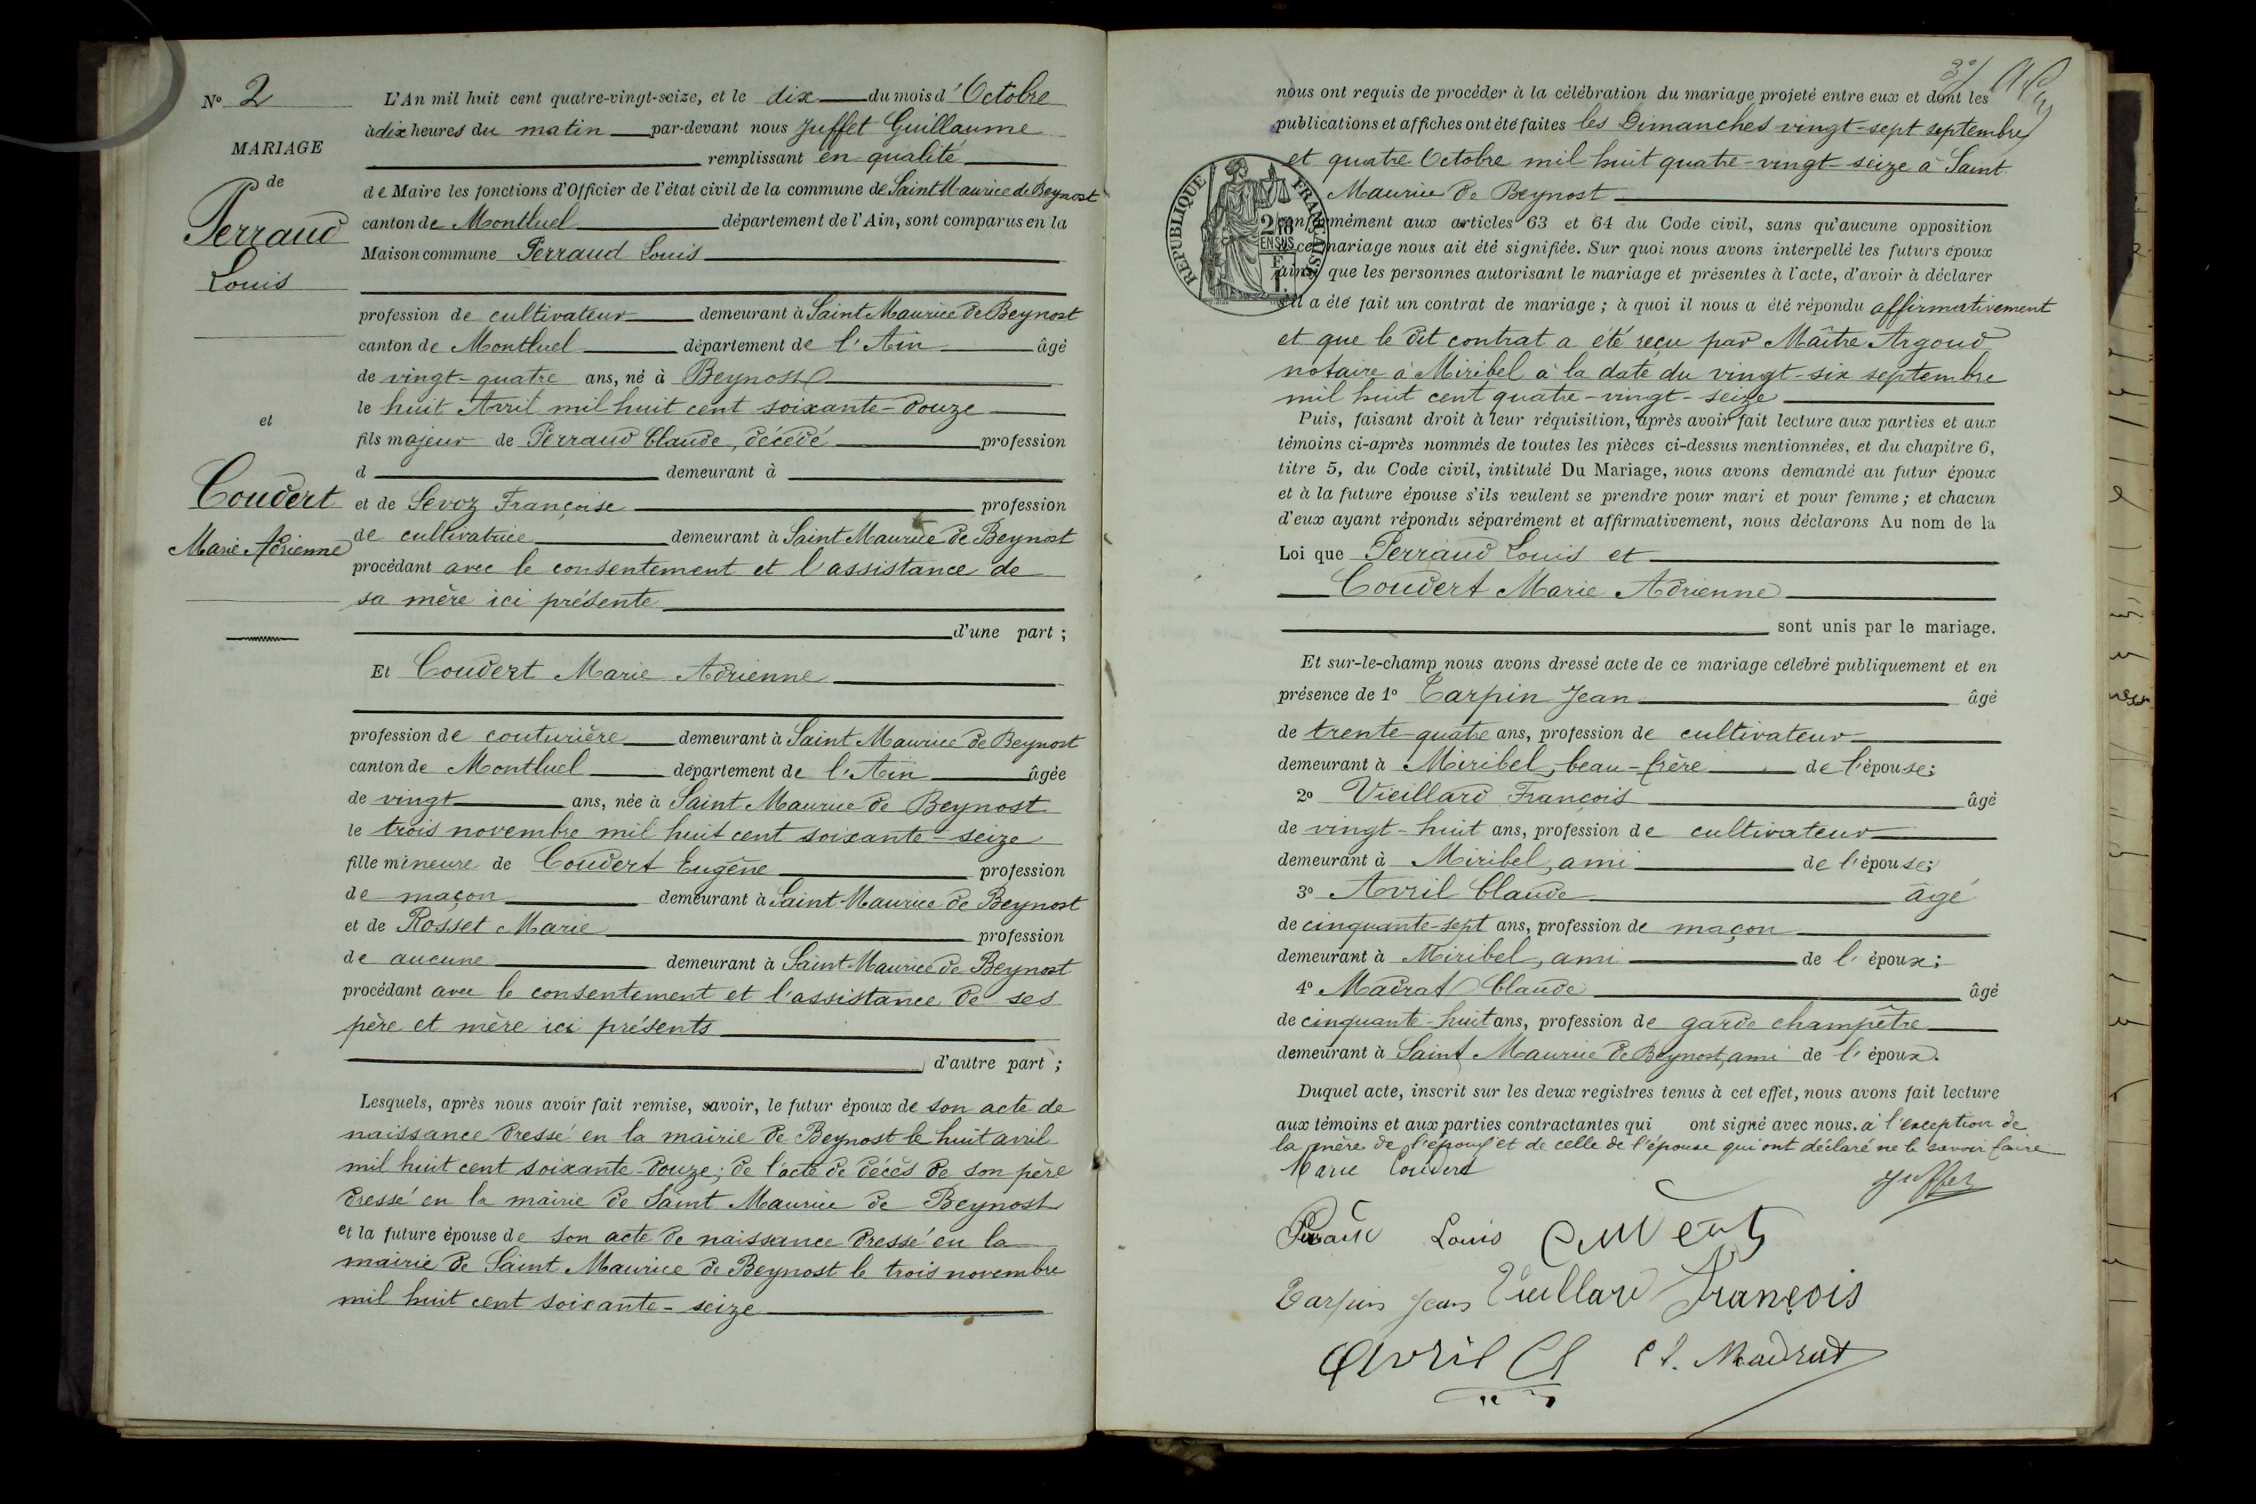 N° 2
MARIAGE
de
Perraud
Louis
et
Coudert
Marie Adrienne
L'An mil huit cent quatre-vingt-seize, et le dix du mois d'Octobre
à dix heures du matin par-devant nous Juffet Guillaume
remplissant en qualité
de Maire les fonctions d'Officier de l'état civil de la commune de Saint Maurice de Beynost
canton de Montluel département de l'Ain, sont comparus en la
Maison commune Perraud Louis
profession de cultivateur demeurant à Saint Maurice de Beynost
canton de Montluel département de l'Ain âgé
de vingt-quatre ans, né à Beynost
le huit Avril mil huit cent soixante-douze
fils majeur de Perraud Claude, décédé profession
d demeurant à
et de Sevoz Françoise profession
de cultivatrice demeurant à Saint Maurice de Beynost
procédant avec le consentement et l'assistance de
sa mère ici présente
d'une part ;
Et Coudert Marie Adrienne
profession de couturière demeurant à Saint Maurice de Beynost
canton de Montluel département de l'Ain âgée
de vingt ans, née à Saint Maurice de Beynost
le trois novembre mil huit cent soixante-seize
fille mineure de Coudert Eugène profession
de maçon demeurant à Saint-Maurice de Beynost
et de Rosset Marie profession
de aucune demeurant à Saint-Maurice de Beynost
procédant avec le consentement et l'assistance de ses
père et mère ici présents
d'autre part ;
Lesquels, après nous avoir fait remise, savoir, le futur époux de son acte de
naissance dressé en la mairie de Beynost le huit avril
mil huit cent soixante-douze; de l'acte de décès de son père
dressé en la mairie de Saint Maurice de Beynost
et la future épouse de son acte de naissance dressé en la
mairie de Saint Maurice de Beynost le trois novembre
mil huit cent soixante-seize
nous ont requis de procéder à la célébration du mariage projeté entre eux et dont les
publications et affiches ont été faites les Dimanches vingt-sept septembre
et quatre Octobre mil huit quatre-vingt-seize à Saint
Maurice de Beynost
RÉPUBLIQUE FRANÇAISE
conformément aux articles 63 et 64 du Code civil, sans qu'aucune opposition
à ce mariage nous ait été signifiée. Sur quoi nous avons interpellé les futurs époux
ainsi que les personnes autorisant le mariage et présentes à l'acte, d'avoir à déclarer
s'il a été fait un contrat de mariage ; à quoi il nous a été répondu affirmativement
et que le dit contrat a été reçu par Maître Argoud
notaire à Miribel à la date du vingt-six septembre
mil huit cent quatre-vingt-seize
Puis, faisant droit à leur réquisition, après avoir fait lecture aux parties et aux
témoins ci-après nommés de toutes les pièces ci-dessus mentionnées, et du chapitre 6,
titre 5, du Code civil, intitulé Du Mariage, nous avons demandé au futur époux
et à la future épouse s'ils veulent se prendre pour mari et pour femme ; et chacun
d'eux ayant répondu séparément et affirmativement, nous déclarons Au nom de la
Loi que Perraud Louis et
Coudert Marie Adrienne
sont unis par le mariage.
Et sur-le-champ nous avons dressé acte de ce mariage célébré publiquement et en
présence de 1° Carpin Jean âgé
de trente-quatre ans, profession de cultivateur
demeurant à Miribel, beau-frère de l'épouse;
2° Vieillard François âgé
de vingt-huit ans, profession de cultivateur
demeurant à Miribel, ami de l'épouse;
3° Avril Claude âgé
de cinquante-sept ans, profession de maçon
demeurant à Miribel, ami de l'époux;
4° Madrat Claude âgé
de cinquante-huit ans, profession de garde champêtre
demeurant à Saint Maurice de Beynost, ami de l'époux.
Duquel acte, inscrit sur les deux registres tenus à cet effet, nous avons fait lecture
aux témoins et aux parties contractantes qui ont signé avec nous. à l'exception de
la mère de l'époux et de celle de l'épouse qui ont déclaré ne le savoir faire
Marie Coudert
Juffet
Louis
Carpin Jean Vieillard François
Avril Cl
Cl. Madrat